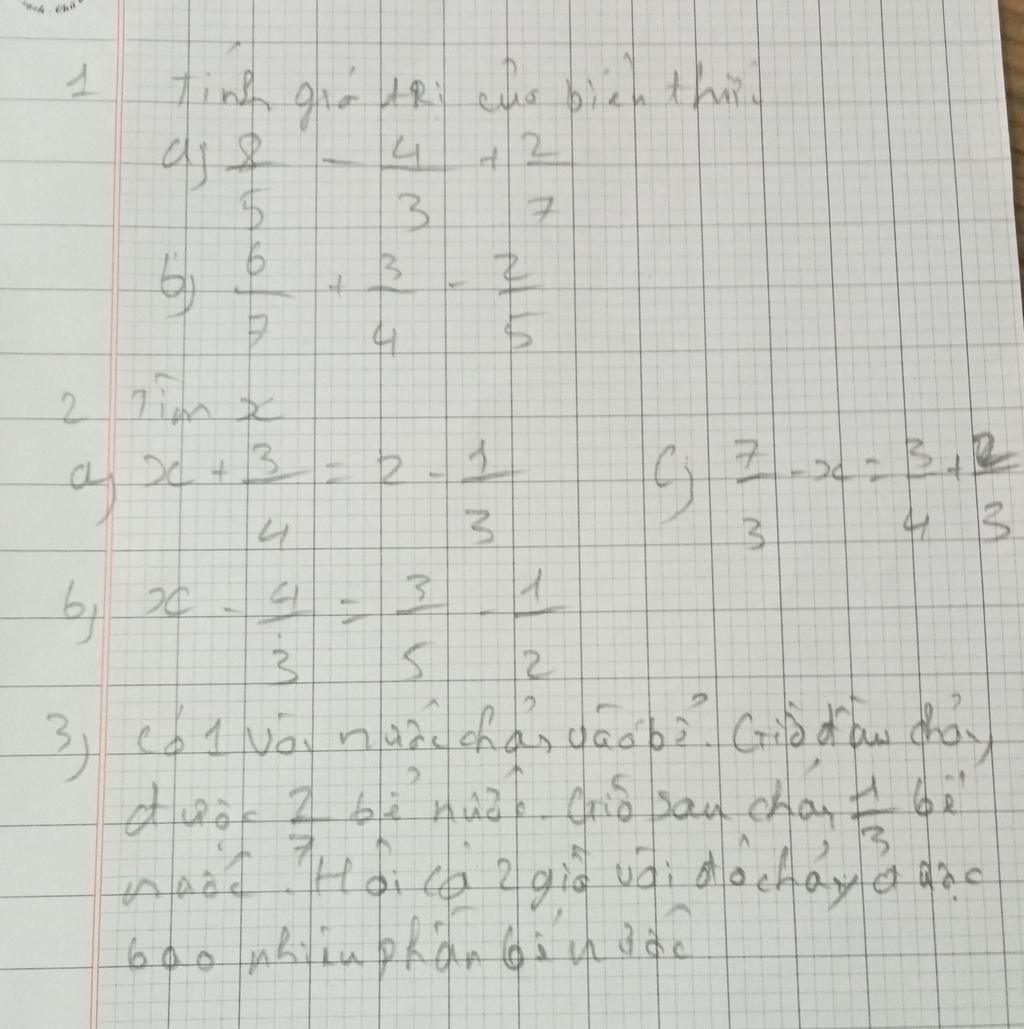 1 Tính giá trị của biểu thức
a) 8/5 - 4/3 + 2/7
b) 6/7 + 3/4 - 2/5
2 Tìm x
a) x + 3/4 = 2 - 1/3 c) 7/3 - x = 3/4 + 2/3
b) x - 4/3 = 3/5 - 1/2
3) Có 1 vòi nước chảy vào bể. Giờ đầu chảy
được 2/7 bể nước. Giờ sau chảy 1/3 bể
nước. Hỏi cả 2 giờ vòi đó chảy được
bao nhiêu phần bể nước